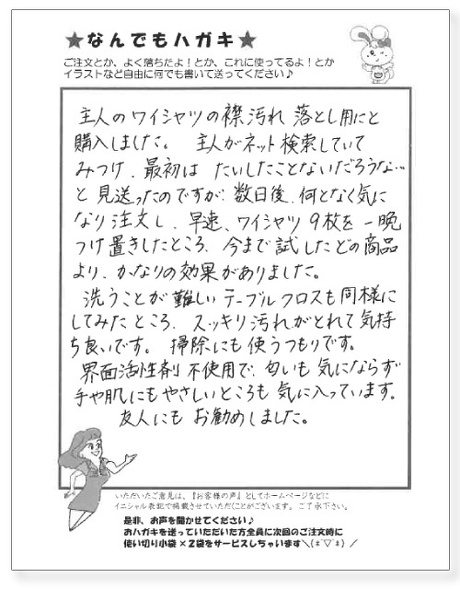 ★なんでもハガキ★
ご注文とか、よく落ちたよ!とか、これに使ってるよ!とか
イラストなど自由に何でも書いて送ってください♪
主人のワイシャツの襟汚れ落とし用にと
購入しました。 主人がネット検索していて
みつけ、最初は たいしたことないだろうな…
と見送ったのですが、数日後、何となく気に
なり注文し、早速、ワイシャツ9枚を一晩
つけ置きしたところ、今まで試したどの商品
より、かなりの効果がありました。
洗うことが難しいテーブルクロスも同様に
してみたところ、スッキリ汚れがとれて気持
ち良いです。 掃除にも使うつもりです。
界面活性剤不使用で、匂いも気にならず
手や肌にもやさしいところも気に入っています。
友人にも お勧めしました。
いただいたご意見は、『お客様の声』としてホームページなどに
イニシャル表記で掲載させていただくことがございます。ご了承下さい。
是非、お声を聞かせてください♪
おハガキを送っていただいた方全員に次回のご注文時に
使い切り小袋×2袋をサービスしちゃいます＼(±▽±)／